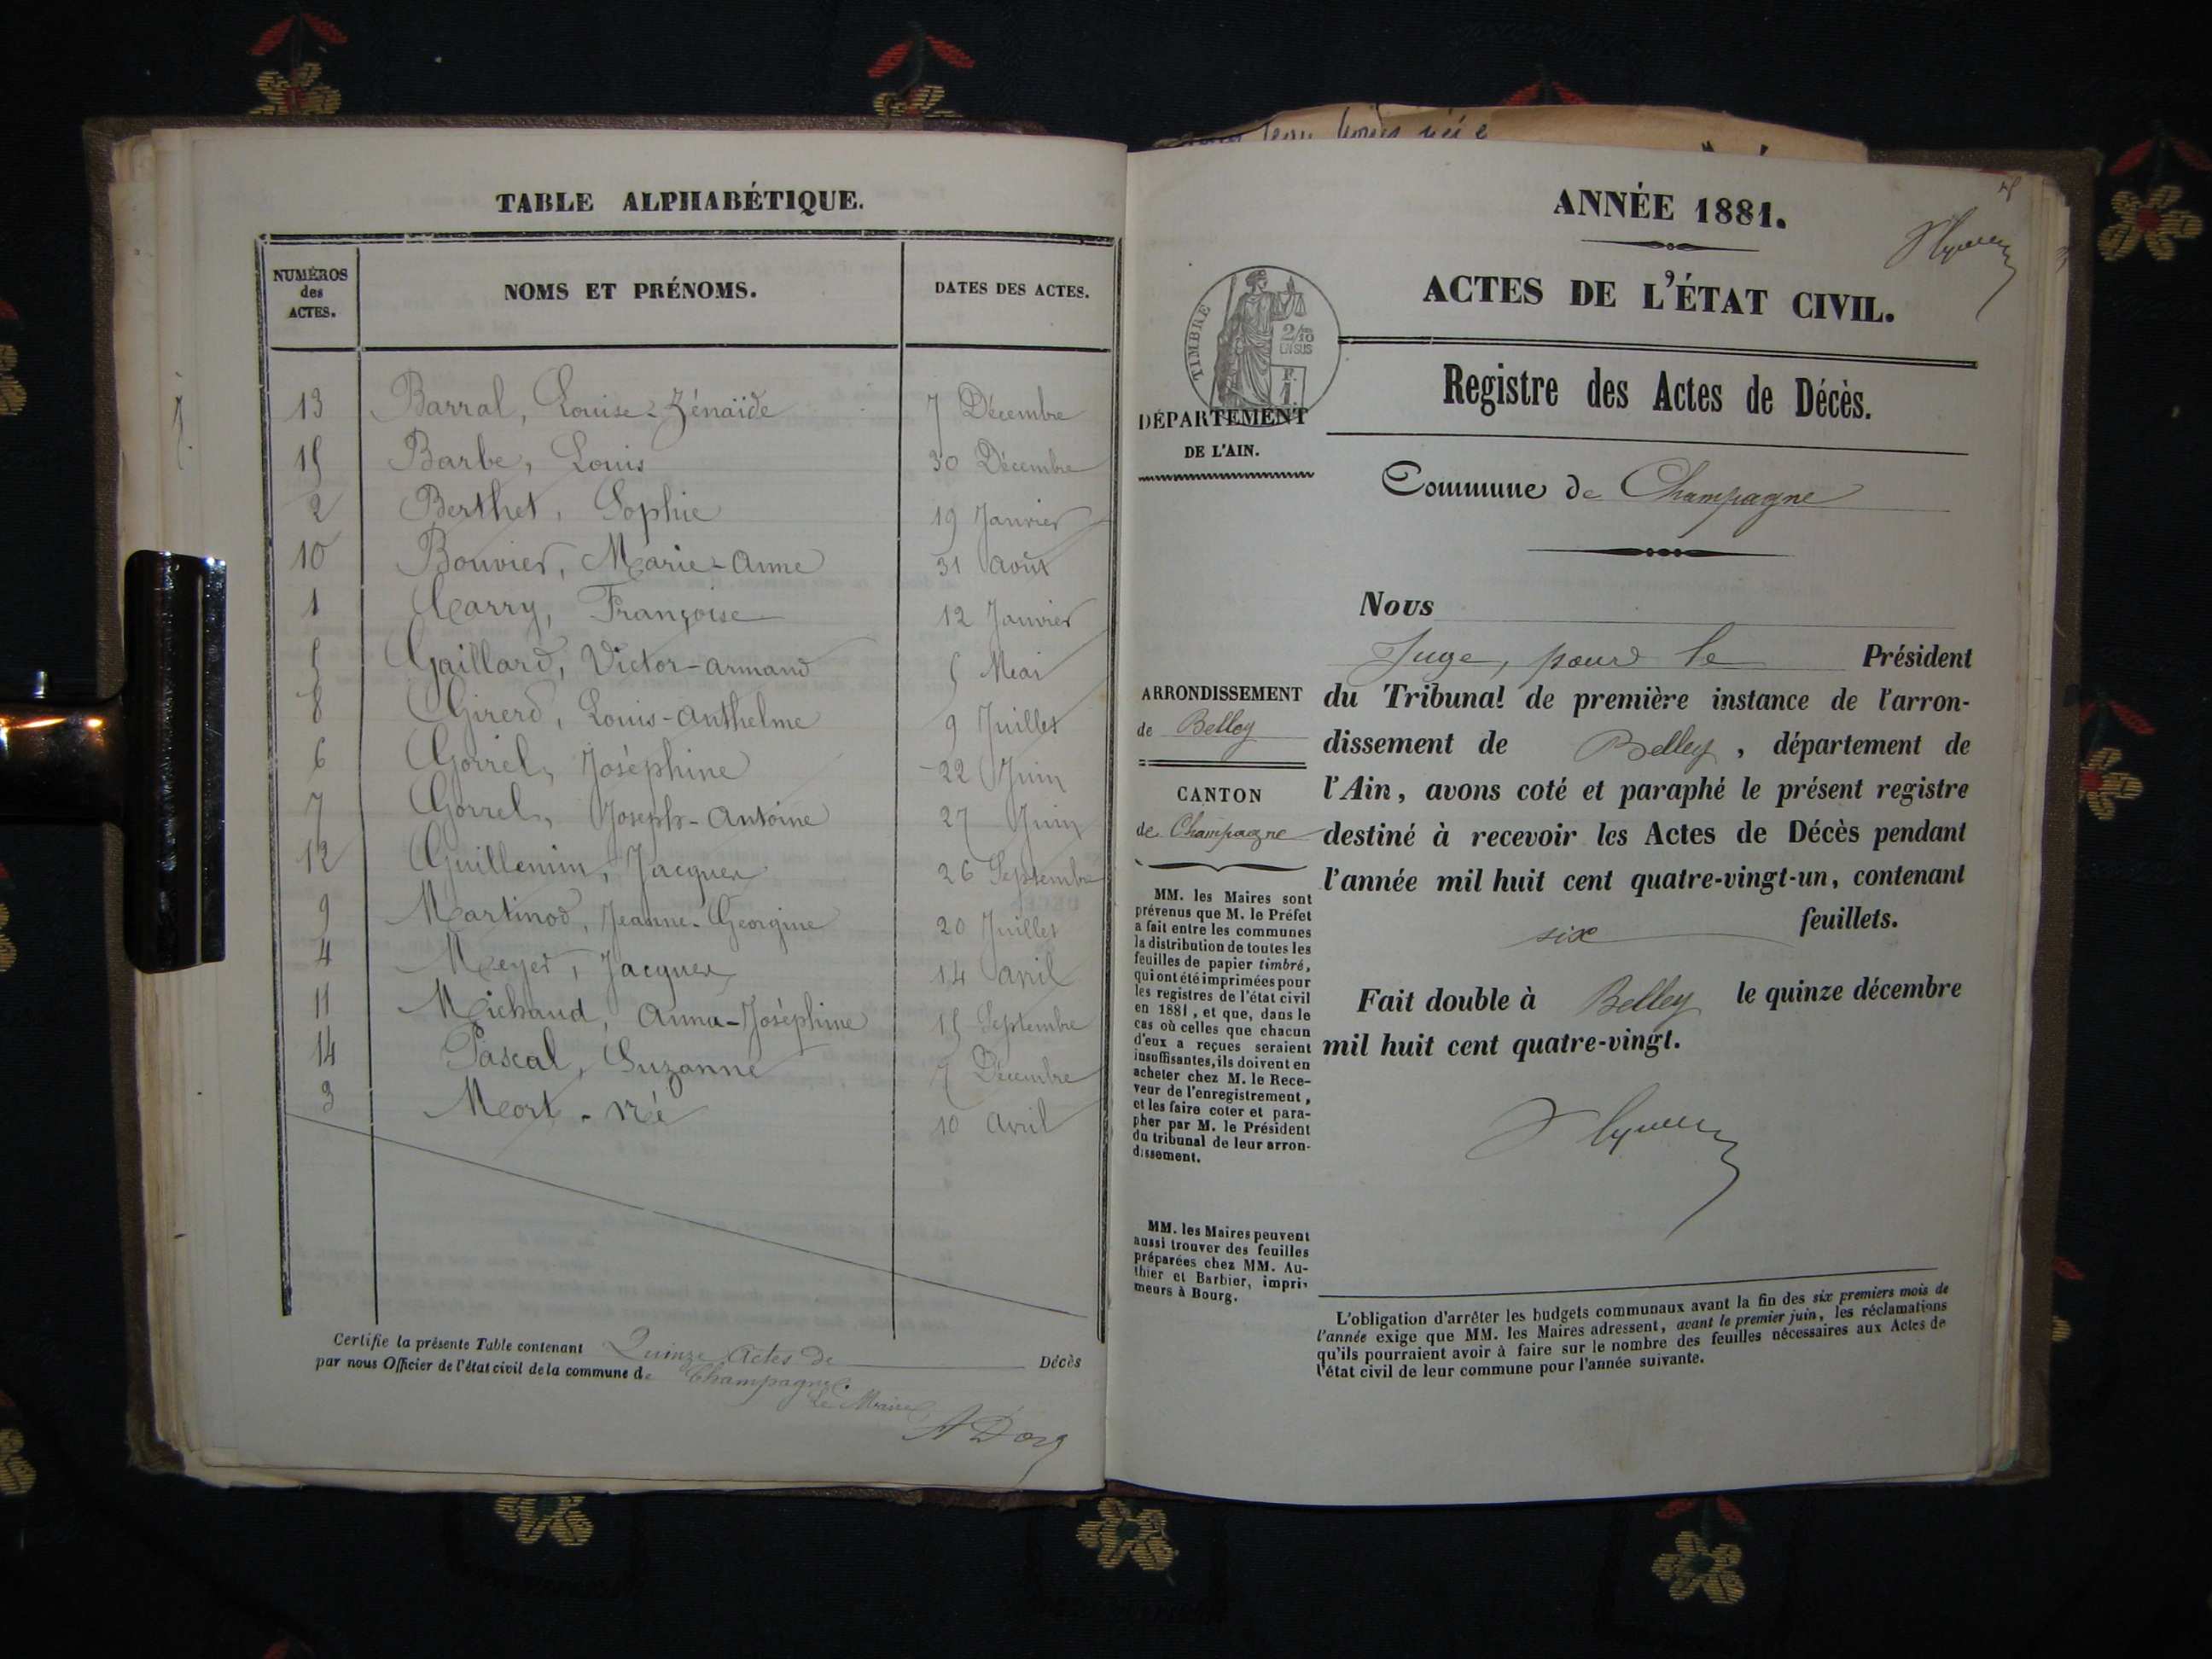 TABLE ALPHABÉTIQUE.
NUMÉROS
des
ACTES.
NOMS ET PRÉNOMS.
DATES DES ACTES.
13 Barral, Louise-Zénaïde 7 Décembre
15 Barbe, Louis 30 Décembre
2 Berthet, Sophie 19 Janvier
10 Bouvier, Marie-Anne 31 Août
1 Carry, Françoise 12 Janvier
5 Gaillard, Victor-Armand 5 Mai
8 Girerd, Louis-Anthelme 9 Juillet
6 Gorrel, Joséphine 22 Juin
7 Gorrel, Joseph-Antoine 27 Juin
12 Guillemin, Jacques 26 Septembre
9 Martinod, Jeanne-Georgine 20 Juillet
4 Meyer, Jacques 14 Avril
11 Michaud, Anna-Joséphine 15 Septembre
14 Pascal, Suzanne 7 Décembre
3 Mort-né 10 Avril
Certifie la présente Table contenant Quinze Actes de Décès
par nous Officier de l'état civil de la commune de Champagne.
Le Maire
ANNÉE 1881.
ACTES DE L'ÉTAT CIVIL.
TIMBRE
2/10
EN SUS
F.
1.
DÉPARTEMENT
DE L'AIN.
Registre des Actes de Décès.
Commune de Champagne
ARRONDISSEMENT
de Belley
CANTON
de Champagne
MM. les Maires sont
prévenus que M. le Préfet
a fait entre les communes
la distribution de toutes les
feuilles de papier timbré,
qui ont été imprimées pour
les registres de l'état civil
en 1881, et que, dans le
cas où celles que chacun
d'eux a reçues seraient
insuffisantes, ils doivent en
acheter chez M. le Rece-
veur de l'enregistrement,
et les faire coter et para-
pher par M. le Président
du tribunal de leur arron-
dissement.
MM. les Maires peuvent
aussi trouver des feuilles
préparées chez MM. Au-
thier et Barbier, impri-
meurs à Bourg.
Nous
Juge, pour le Président
du Tribunal de première instance de l'arron-
dissement de Belley, département de
l'Ain, avons coté et paraphé le présent registre
destiné à recevoir les Actes de Décès pendant
l'année mil huit cent quatre-vingt-un, contenant
six feuillets.
Fait double à Belley le quinze décembre
mil huit cent quatre-vingt.
L'obligation d'arrêter les budgets communaux avant la fin des six premiers mois de
l'année exige que MM. les Maires adressent, avant le premier juin, les réclamations
qu'ils pourraient avoir à faire sur le nombre des feuilles nécessaires aux Actes de
l'état civil de leur commune pour l'année suivante.